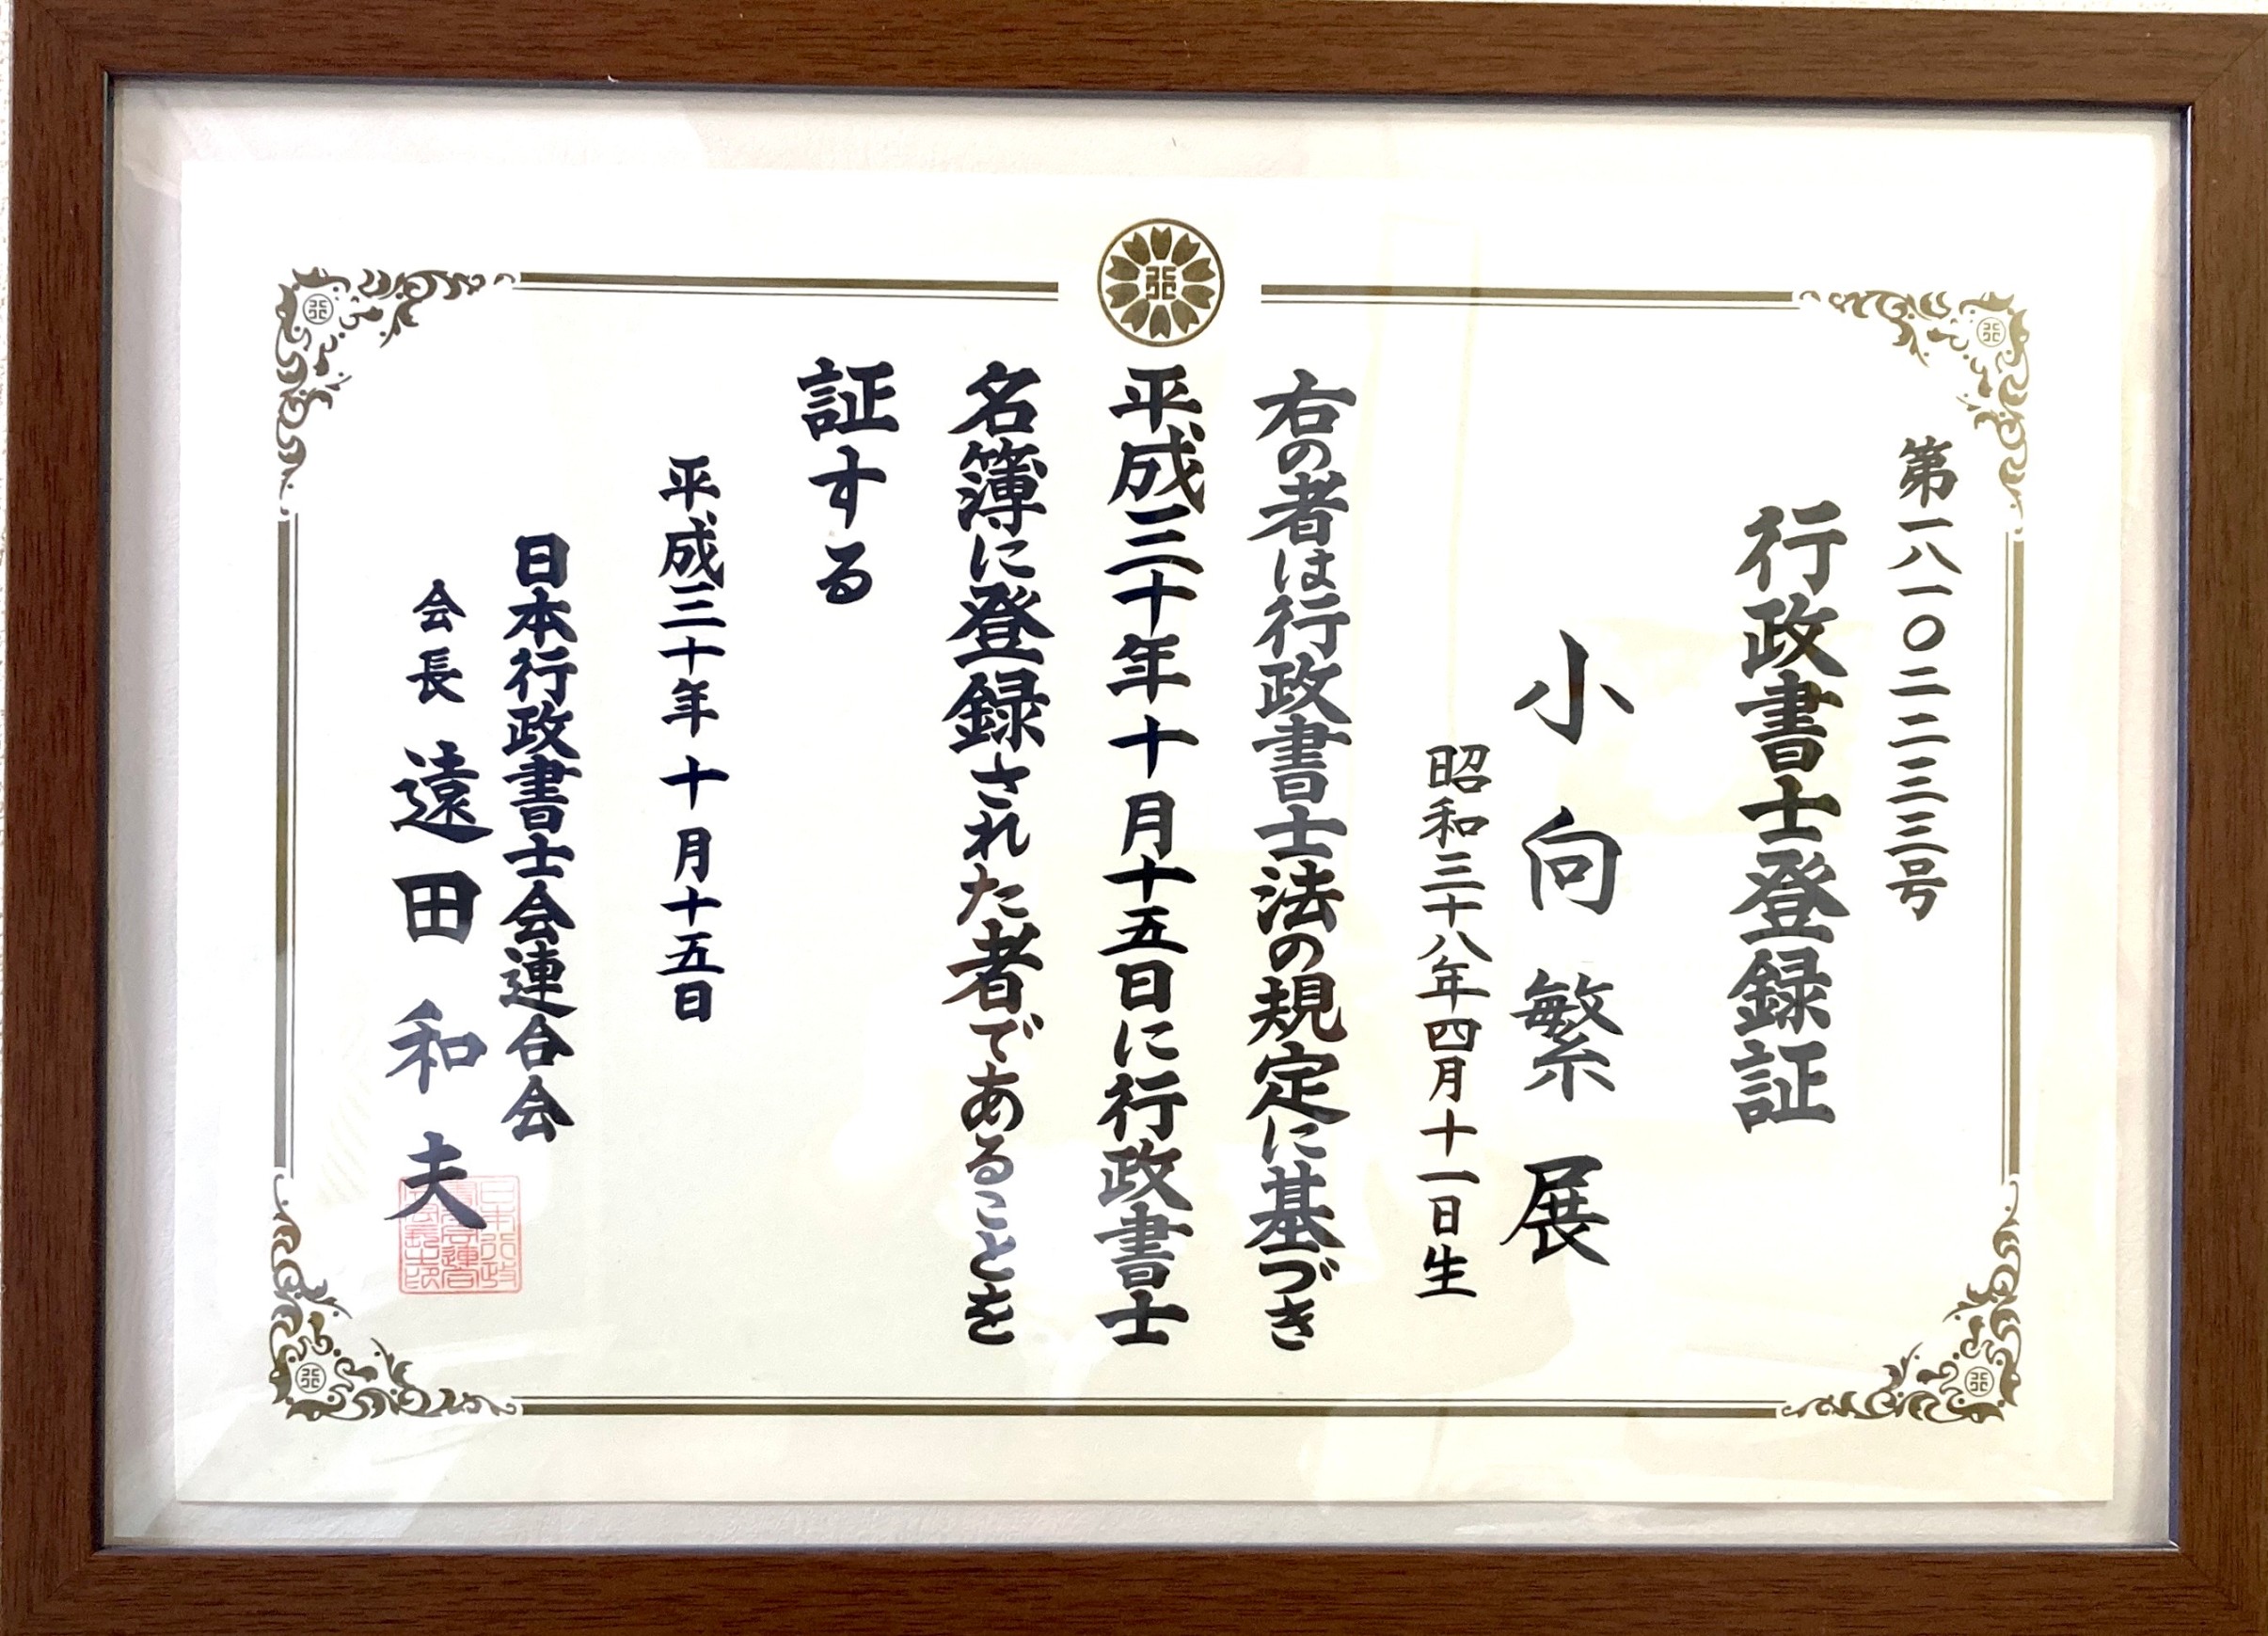 第一八一〇二二三三号
行政書士登録証
小向繁展
昭和三十八年四月十一日生
右の者は行政書士法の規定に基づき
平成三十年十月十五日に行政書士
名簿に登録された者であることを
証する
平成三十年十月十五日
日本行政書士会連合会
会長 遠田和夫